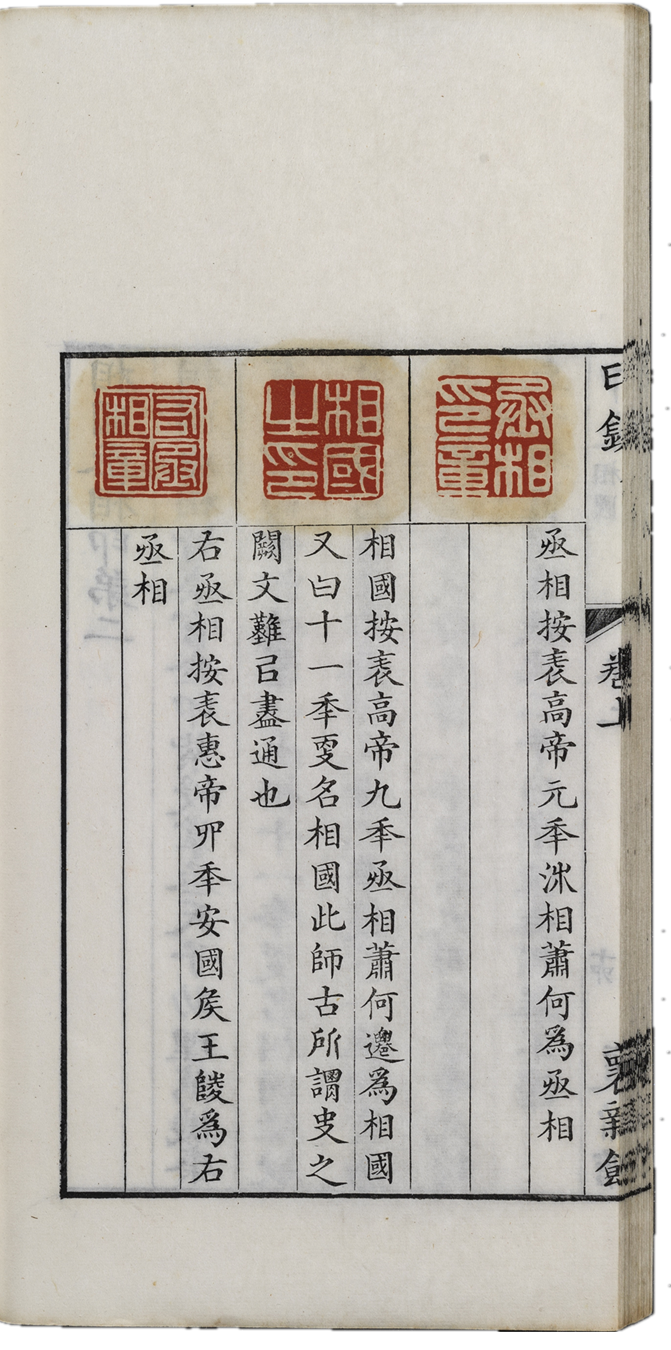 丞相印章
丞相按表高帝元年沛相蕭何爲丞相
相國之印
相國按表高帝九年丞相蕭何遷爲相國
又曰十一年更名相國此師古所謂史之
闕文難㠯盡通也
右丞相章
右丞相按表惠帝六年安國矦王陵爲右
丞相
卷上